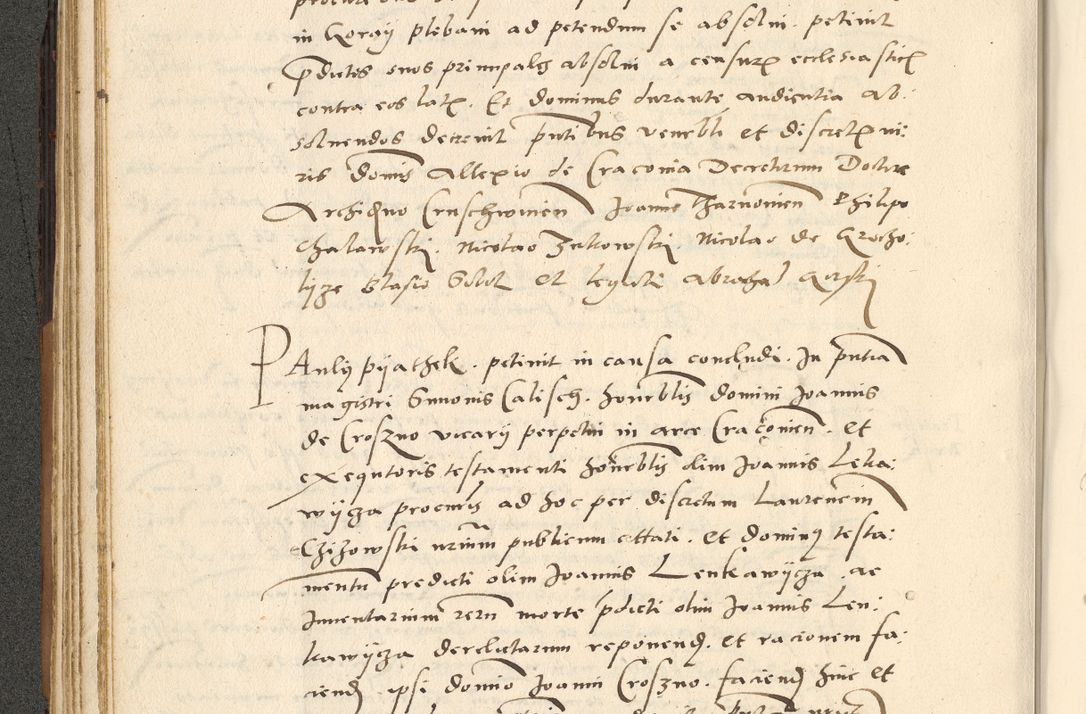 in Gorgij plebani ad petendum se absolui. petiuit
pdictos suos principales absolui a censuris ecclesiastic
contra eos latis. Et dominus durante audientia ab:
soluendos decreuit pntibus venerbli et discretis ui:
ris domis Allexio de Craconia Decretorum Doctore
Archidno Cruschwicien Joanne Tharnouien Philipo
Chalawski. Nicolao Zukowski Nicolao de Grocho:
lijze Blasio et Abraha Gorski
PAuli pijathek. petiuit in causa concludi. In pntia
magistri Simonis Calisch. honorblis domini Joannis
de Croszno vicarij perpetui in arce Craconien. et
exequtoris testamenti honorblis olim Joannis Leka:
wijcza procuris ad hoc per discretum Laurencium
Chizowski notrium publicum cittati. et dominus testa:
mentu predicti olim Joannis Lenkawijcza. ac
Inuentarium rerum morte pdicti olim Joannis Len:
kawijcza derelictarum reponend. et racionem fa:
ciend ipsi domino Joanni Croszno. faciend hinc et